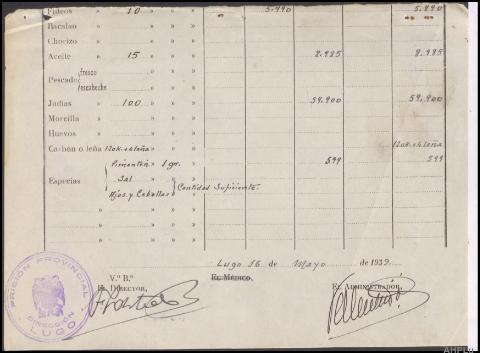 Fideos 10 » » 5.990 5.990
Bacalao » » »
Chorizo » » »
Aceite 15 » » 8.985 8.985
Pescado { fresco » » »
escabeche » » »
Judías 100 » » 59.900 59.900
Morcilla » » »
Huevos » » »
Carbón o leña 120K. ó leña » » 120K. ó leña
Especias { Pimentón 1 gr. 599 599
Sal » »
Ajos y Cebollas } Cantidad Suficiente.
» » »
» » »
» » »
Lugo 16 de Mayo de 1939.
V.º B.º
EL DIRECTOR, EL MÉDICO, EL ADMINISTRADOR,
PRISIÓN PROVINCIAL
DIRECCIÓN
LUGO
AHPLU